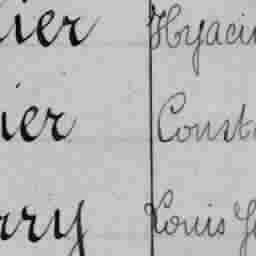 ier Hyacin
ier Const
rry Louis J